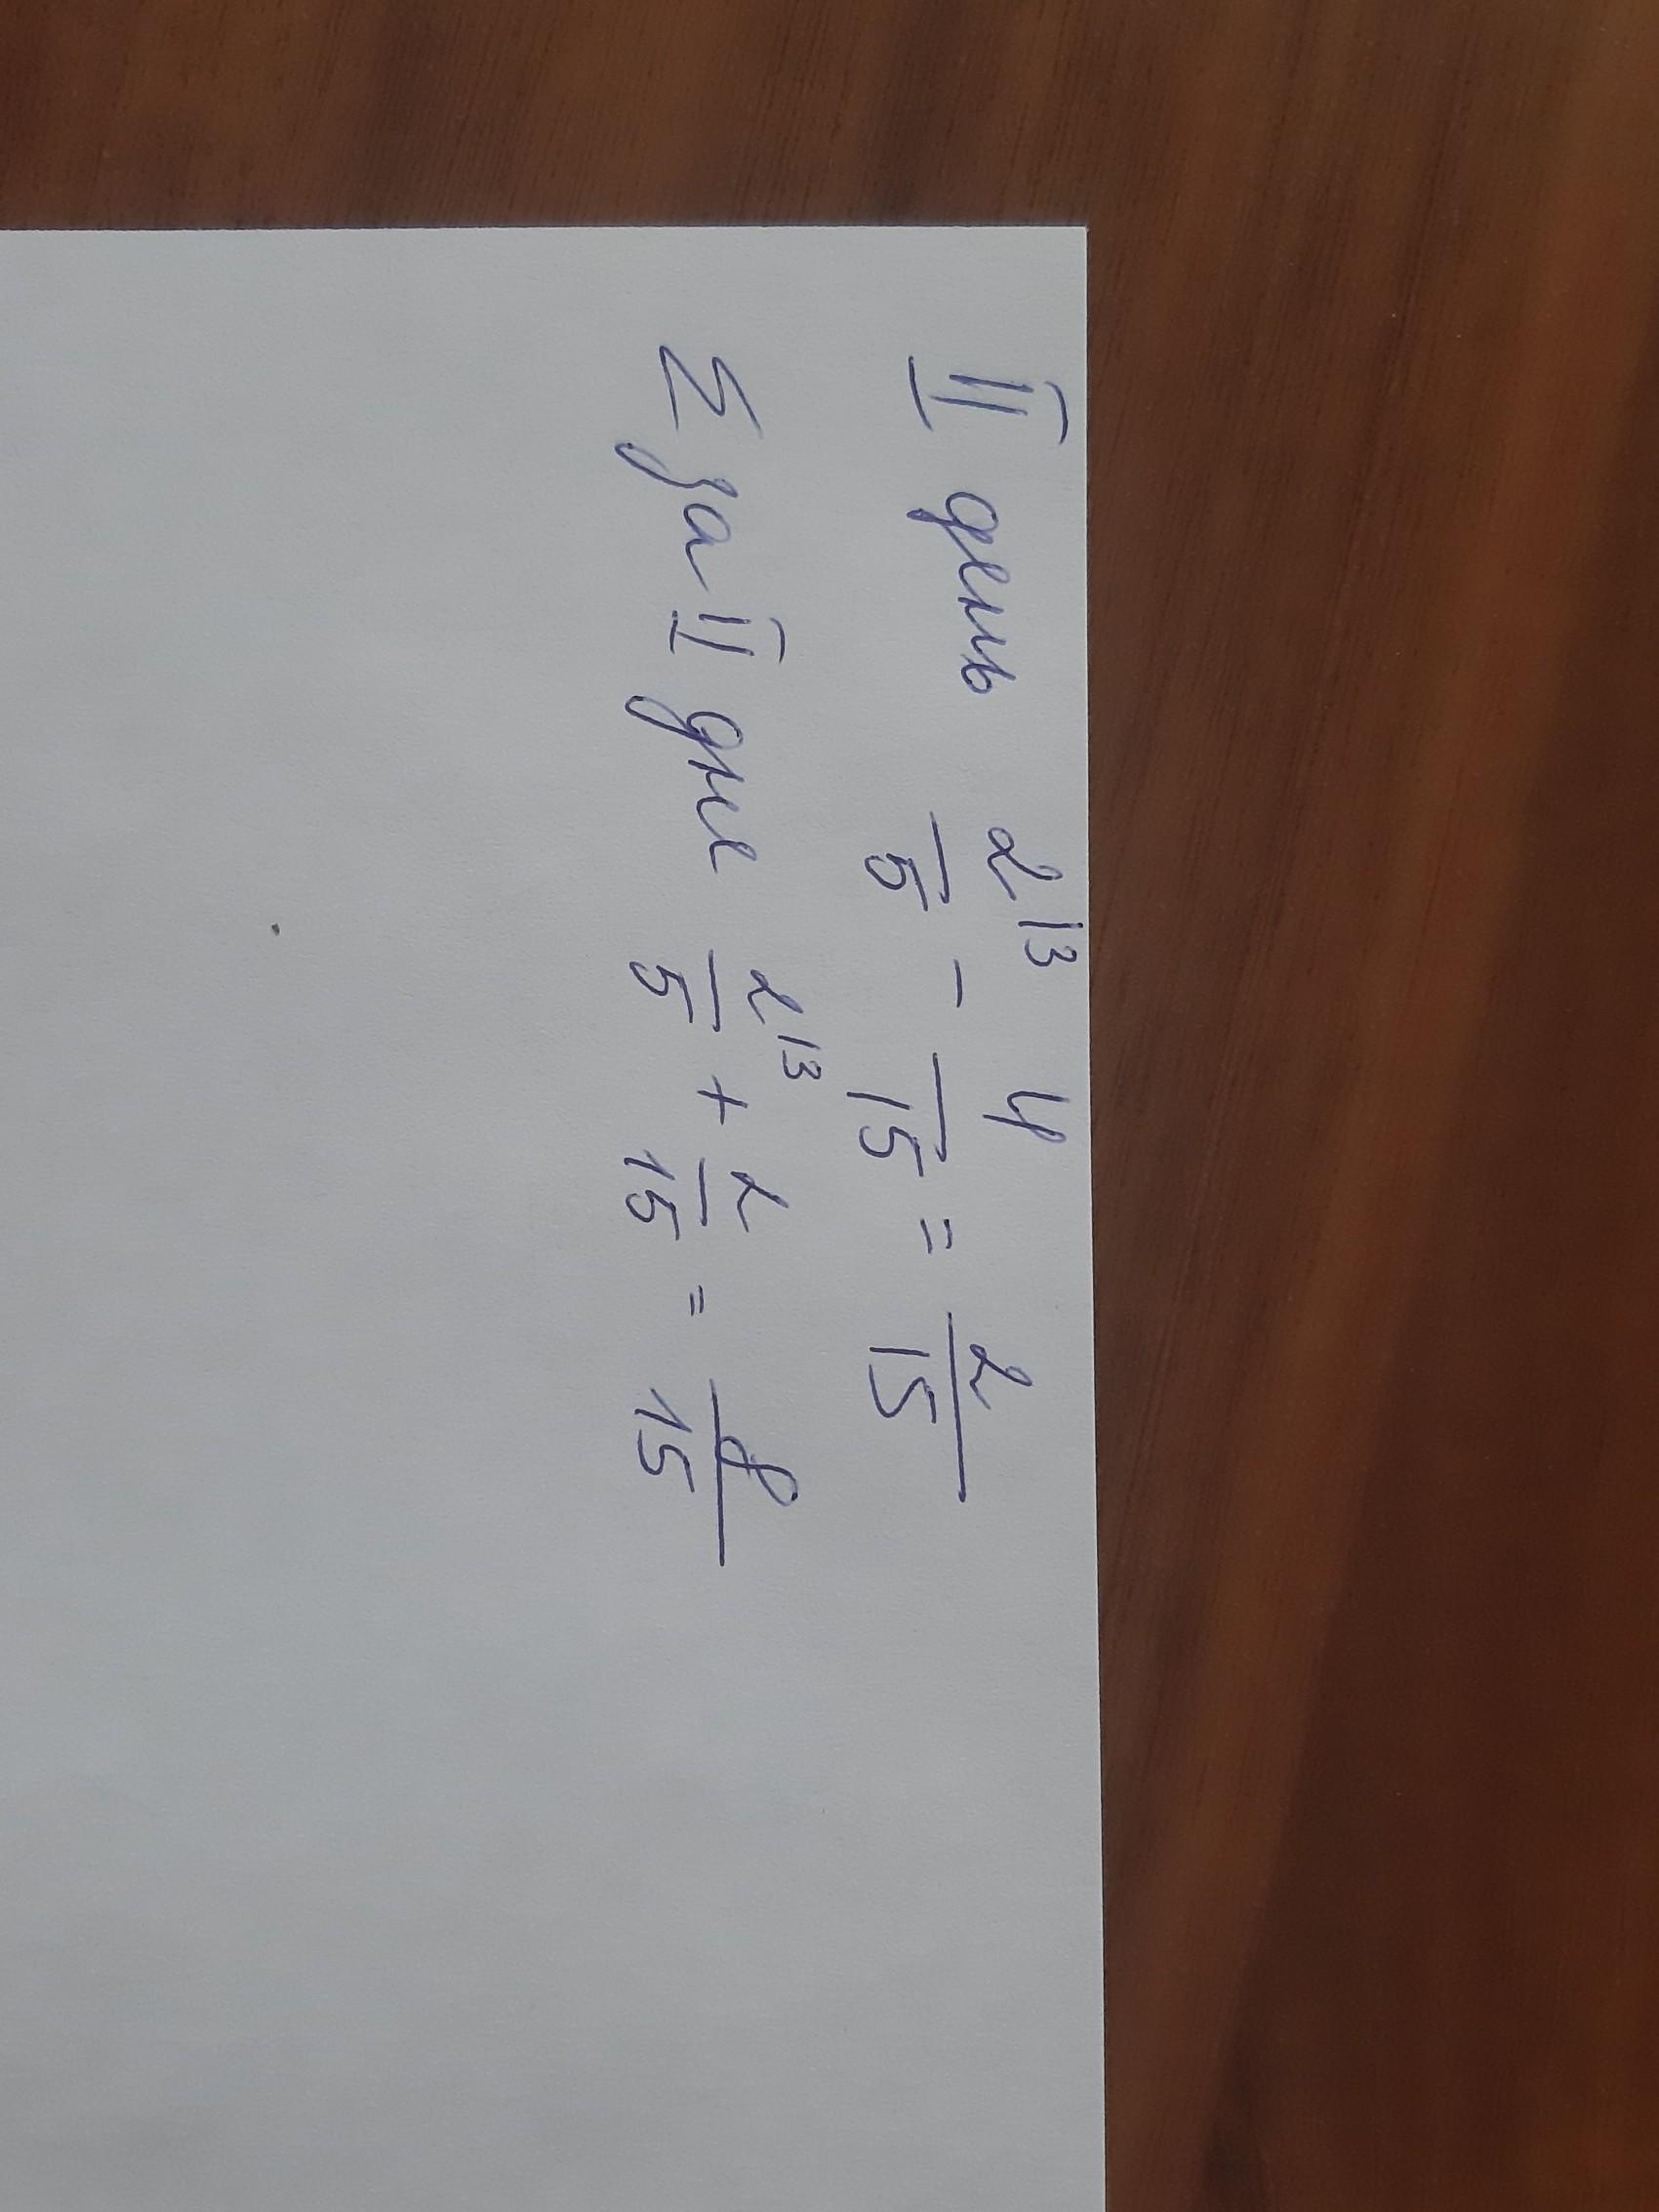 II день 2/5 |3 - 4/15 = 2/15
Σ за II дня 2/5 |3 + 2/15 = 8/15